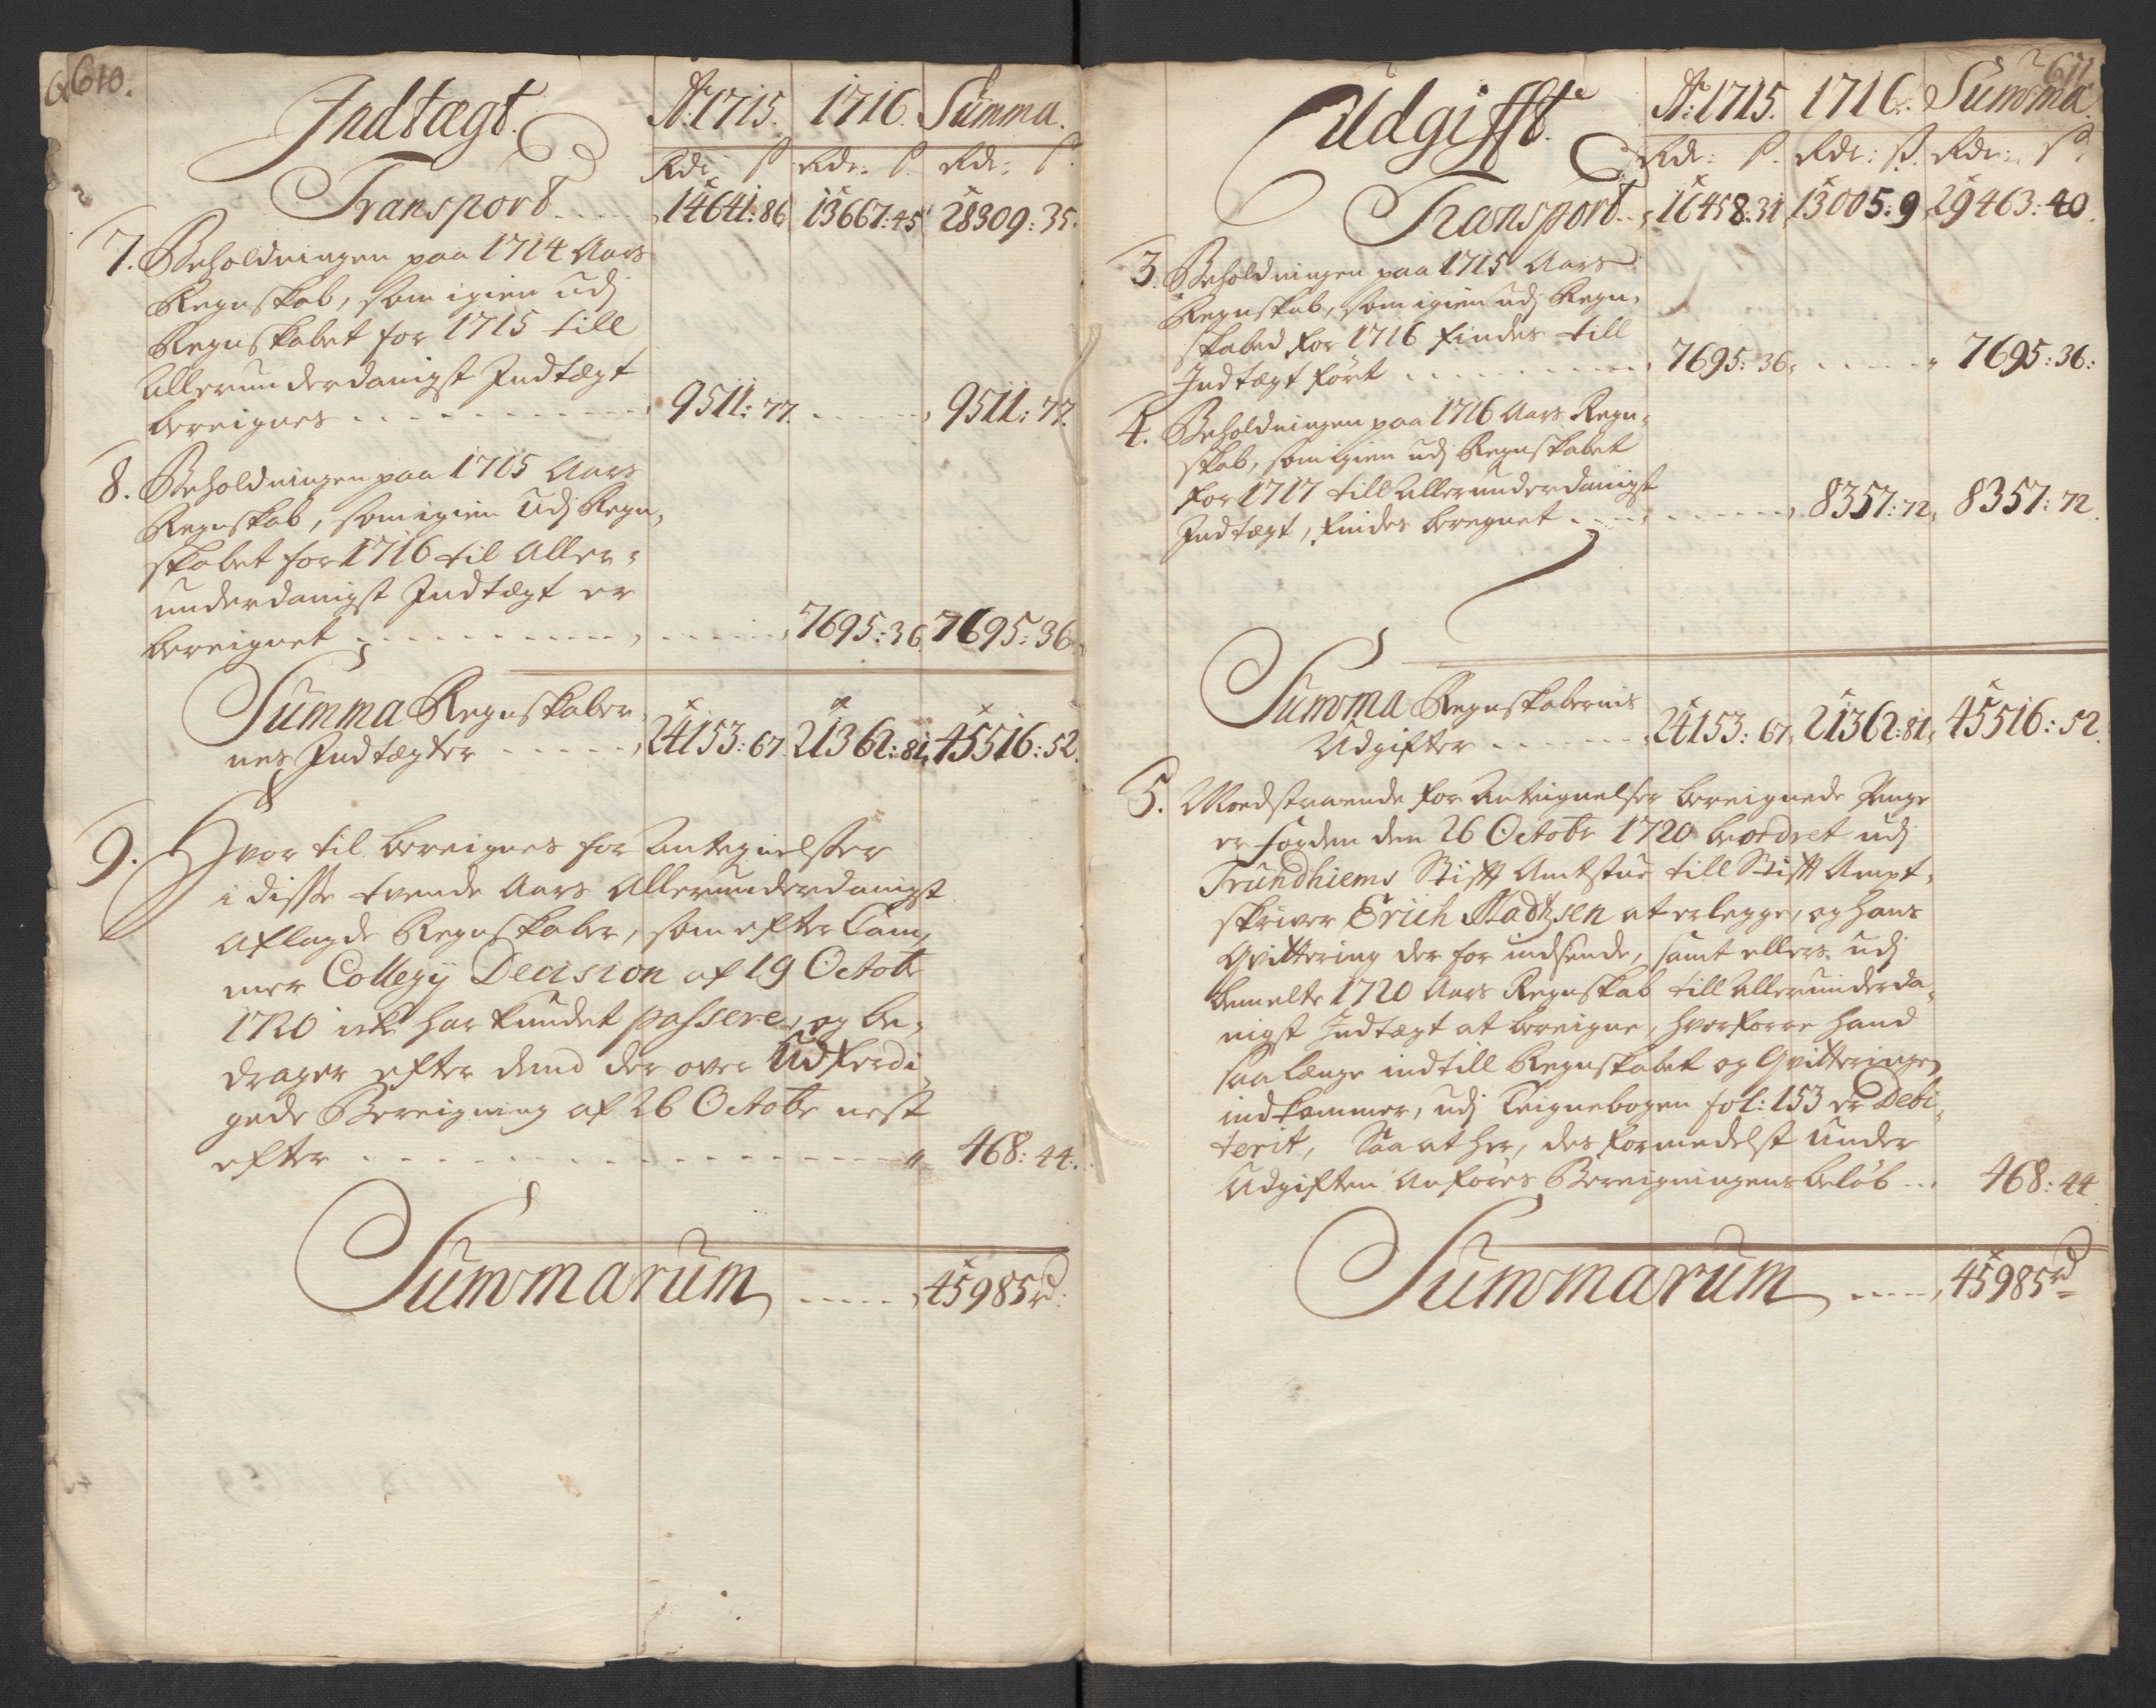 610.
Indtægt. Aō: 1715. 1716. Summa.
Rdr: ß. Rdr: ß. Rdr: ß.
Transport ..... 14641: 86. 13667: 45. 28309: 35.
7. Beholdningen paa 1714 Aars
Regnskab, som igien udj
Regnskabet for 1715 till
Allerunderdanigst Indtægt
bereignes ........... 9511: 77. ...... 9511: 77.
8. Beholdningen paa 1715 Aars
Regnskab, som igien Udj Regn-
skabet for 1716 til Aller-
underdanigst Indtægt er
bereignet ........... 7695: 36. 7695: 36.
Summa Regnskaber-
nes Indtægter ...... 24153: 67. 21362: 81. 45516: 52.
9. Hvor til bereignes for Antegnelsser
i disse tvende Aars Allerunderdanigst
aflagde Regnskaber, som efter Cam-
mer Collegij Decision af 19 Octobr
1720 icke har kundet passere, og be-
drager efter dend der over Udferdi-
gede Bereigning af 26 Octobr nest
efter .................... 468: 44.
Summarum ..... 45985 rd:
611
Udgifft. Aō: 1715. 1716. Summa.
Rdr: ß. Rdr: ß. Rdr: ß.
Transport .. 16458: 31. 13005: 9. 29463: 40.
3. Beholdningen paa 1715 Aars
Regnskab, som igien udj Regn-
skabed for 1716 findes till
Indtægt ført .......... 7695: 36. ..... 7695: 36:
4. Beholdningen paa 1716 Aars Regn-
skab, som igien udj Regnskabet
for 1717 till Allerunderdanigst
Indtægt, findes beregnet ........ 8357: 72. 8357: 72.
Summa Regnskabernis
Udgifter ....... 24153: 67. 21362: 81. 45516: 52.
5. Modstaaende for Antegnelser bereignede Penge
er fogden den 26 Octobr 1720 beordret udj
Trundhiems Stifft Amtstue till Stifft Ampt-
skriver Erich Madtzsen at erlegge, og hans
Qvittering der for indsende, samt ellers udj
bemelte 1720 Aars Regnskab till Allerunderda-
nigst Indtægt at bereigne, hvorforre hand
saa længe indtill Regnskabet og Qvitteringen
indkommer, udj Teignebogen fol: 153 er Debi-
terit, Saa at her, des formedelst under
Udgiften anføres Bereigningens beløb ... 468: 44
Summarum ..... 45985 rd